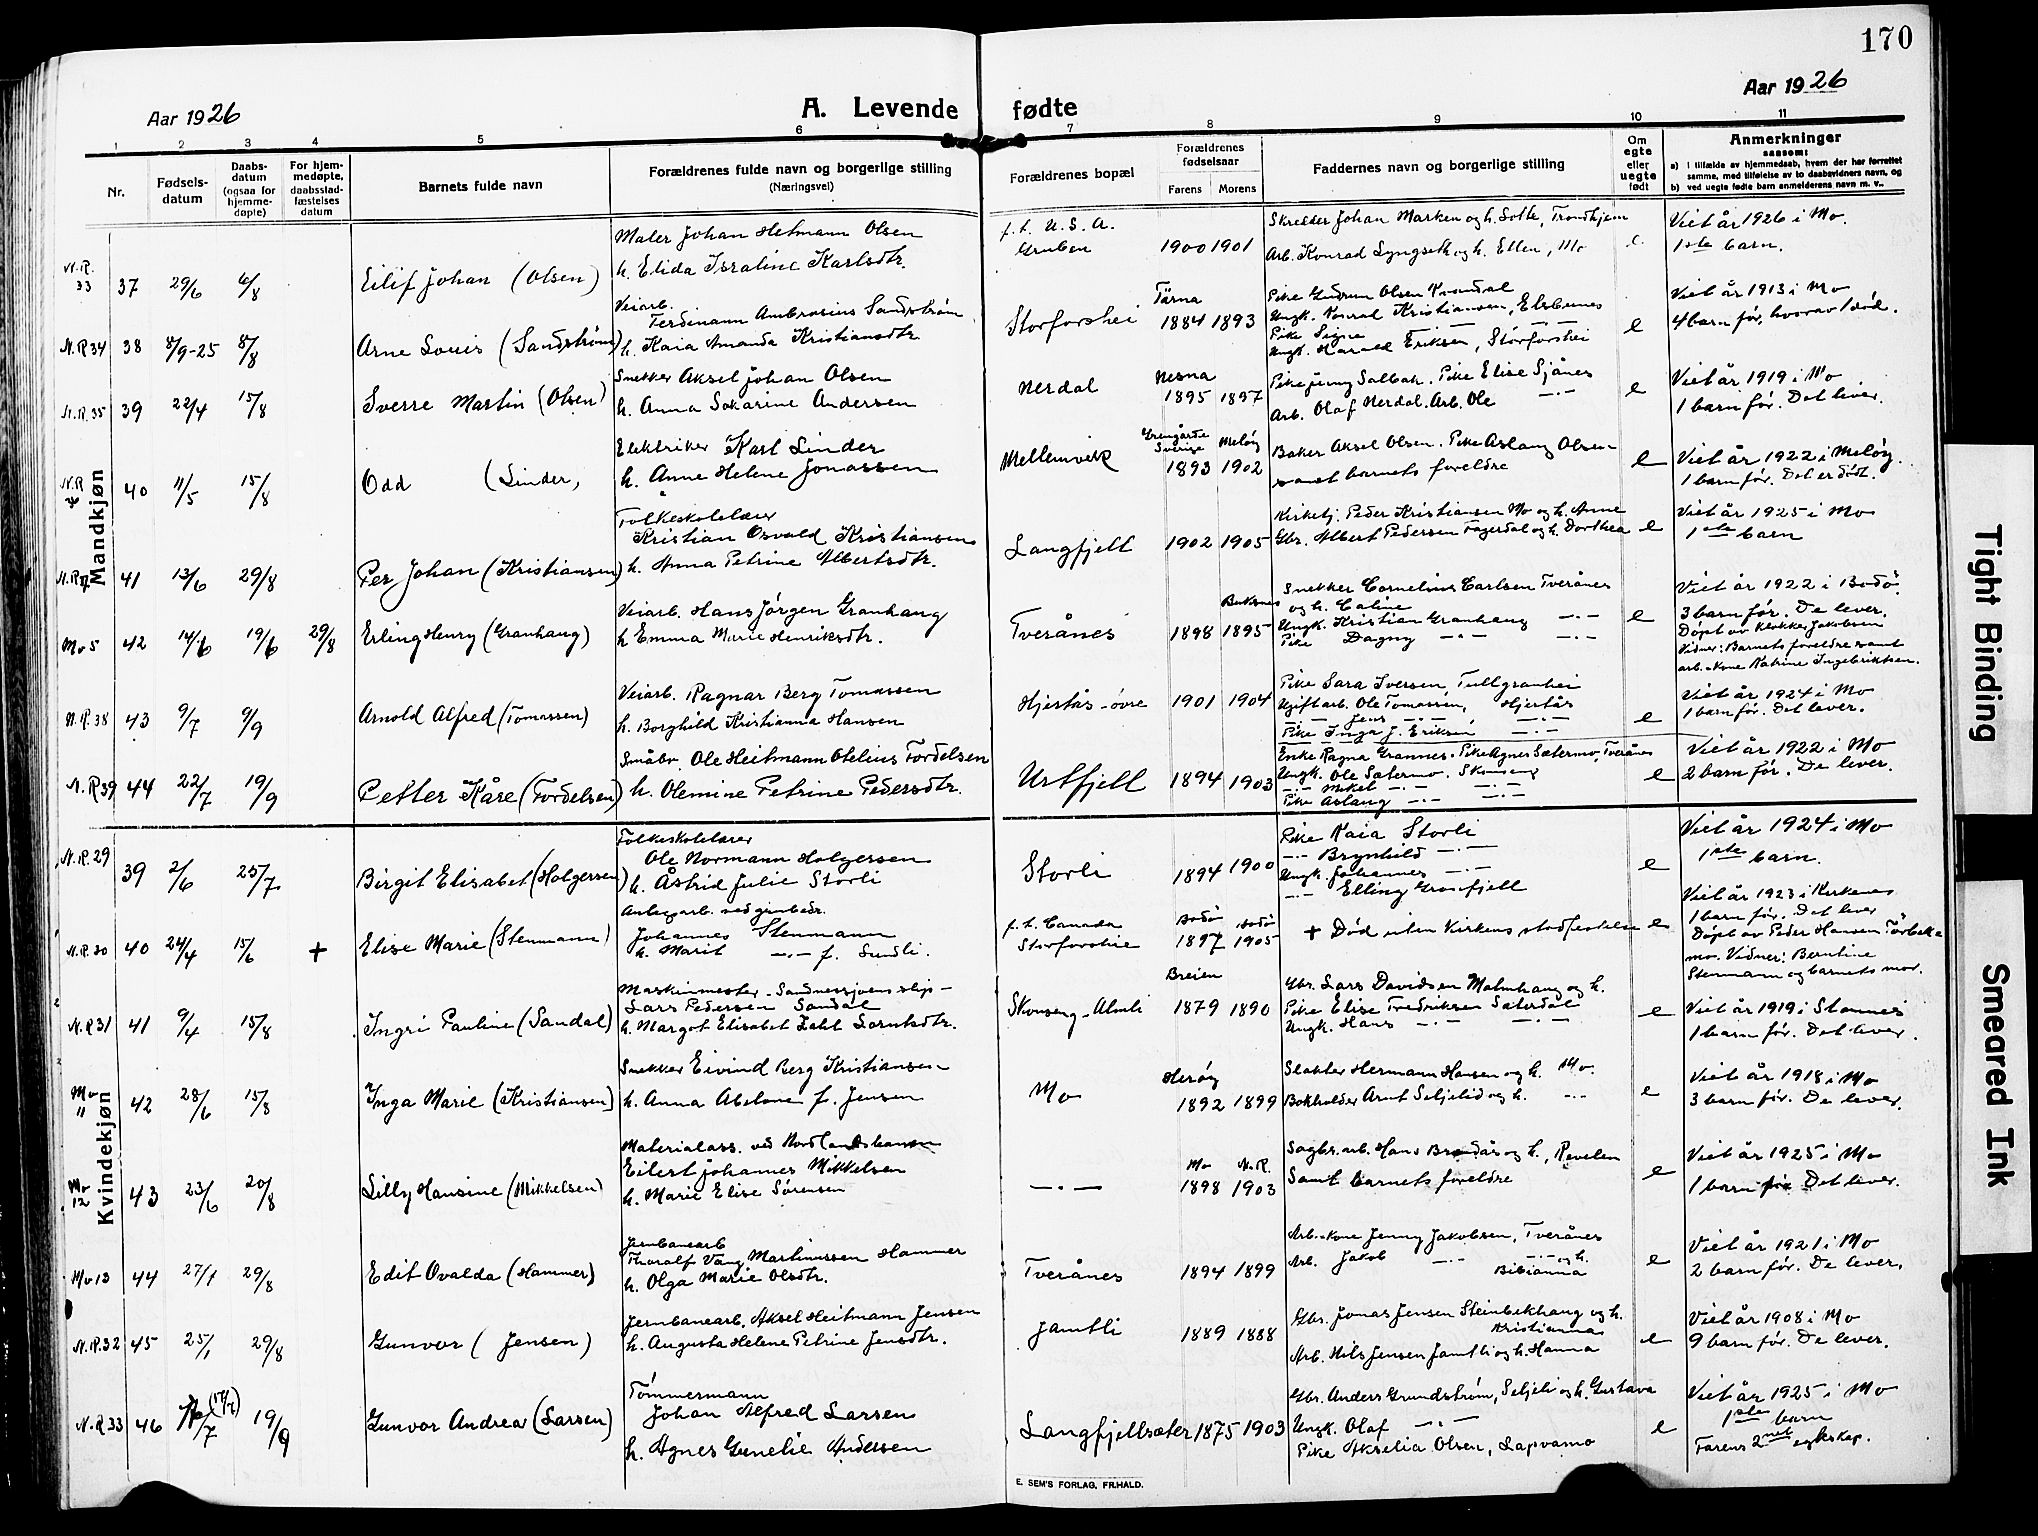 170
Aar 1926
A. Levende fødte
Aar 1926
1 2 3 4 5 6 7 8 9 10 11
Nr.
Fødsels-
datum
Daabs-
datum
(ogsaa for
hjemme-
døpte)
For hjem-
medøpte,
daabsstad-
fæstelses
datum
Barnets fulde navn
Forældrenes fulde navn og borgerlige stilling
(Næringsvei)
Forældrenes bopæl
Forældrenes
fødselsaar
Farens Morens
Faddernes navn og borgerlige stilling
Om
egte
eller
uegte
født
Anmerkninger
saasom:
a) i tilfælde av hjemmedaab, hvem der har forrettet
samme, med tilføielse av to daabsvidners navn, og
b) ved uegte fødte barn anmelderens navn m. v..
Mandkjøn
N.R. 33 37 29/6 6/8 Eilif Johan (Olsen)
Maler Johan Hetmann Olsen
h. Elida Israline Karlsdtr.
f.t. U.S.A.
Gruben 1900 1901
Skredder Johan Marken og h. Lotte, Trondhjem
Arb. Konrad Lyngseth og h. Ellen, Mo
e.
Viet år 1926 i Mo.
1ste barn.
N.R 34 38 8/9-25 8/8 Arne Louis (Sandstrøm)
Veiarb.
Ferdinann Ambrosius Sandstrøm
h. Kaia Amanda Kristiansdtr.
Storforshei Tärna 1884 1893
Pike Gudrun Olsen Kvandal
Ungk. Konrad Kristiansen, Elsbunes
Pike Signe —·— —·—
Ungk. Harald Eriksen, Storforshei
e
Viet år 1913 i Mo
4 barn før, hvorav 1 død.
N.R.35 39 22/4 15/8 Sverre Martin (Olsen)
Snekker Aksel Johan Olsen
h. Anna Sakarine Andersen
Nerdal Nesna 1895 1897
Pike Jenny Salbak. Pike Elise Sjånes
Arb. Olaf Nerdal. Arb. Ole —·—
e
Viet år 1919 i Mo
1 barn før. Det lever.
N.R 36 40 11/5 15/8 Odd (Linder,
Elektriker Karl Linder
h. Anne Helene Jonassen
Mellemvik Grengärde Sverige 1893 Meløy 1902
Baker Aksel Olsen. Pike Aslaug Olsen
samt barnets foreldre
e
Viet år 1922 i Meløy.
1 barn før. Det er dødt.
N.R 37 41 13/6 29/8 Per Johan (Kristiansen)
Folkeskolelærer
Kristian Osvald Kristiansen
h. Anna Petrine Albertsdtr.
Langfjell 1902 1905
Kirketj. Peder Kristiansen Mo og h. Anne
Gbr. Albert Pedersen Fagerdal og h. Dorthea
e
Viet år 1925 i Mo
1ste barn
Mo 5 42 14/6 19/6 29/8 Erling Henry (Granhaug)
Veiarb. Hans Jørgen Granhaug
h Emma Marie Henriksdtr.
Tverånes 1898 Buksnes 1895
Snekker Cornelius Carlsen Tverånes
og h. Caline
Ungk. Kristian Granhaug —·—
Pike Dagny —·— —·—
e
Viet år 1922 i Bodö.
3 barn før. De lever.
Døpt av klokker Jakobsen
Vidner: Barnets foreldre samt
arb.-kone Katrine Ingebriktsen.
N.R.38 43 9/7 9/9 Arnold Alfred (Tomassen)
Veiarb. Ragnar Berg Tomassen
h. Borghild Kristianna Hansen
Hjertås-övre 1901 1904
Pike Sara Iversen, Tullgranhei
Ugift arb. Ole Tomassen, Hjertås
—·— Jens —·— —·—
Pike Inga J. Eriksen —·—
e
Viet år 1924 i Mo
1 barn før. Det lever.
N.R 39 44 22/7 19/9 Petter Kåre (Fordelsen)
Småbr. Ole Heitmann Otelius Fordelsen
h. Olemine Petrine Pedersdtr.
Urtfjell 1894 1903
Enke Ragna Grannes. Pike Agnes Sætermo, Tverånes
Ungk. Ole Sætermo. Skonseng
—·— Mikel —·— —·—
Pike Aslaug —·— —·—
e
Viet år 1922 i Mo
2 barn før. De lever.
Kvindekjøn
N.R.29 39 2/6 25/7 Birgit Elisabet (Holgersen)
Folkeskolelærer
Ole Normann Holgersen
h. Åstrid Julie Storli
Storli 1894 1900
Pike Kaia Storli
—·— Brynhild —·—
Ungk. Johannes —·—
—·— Elling Grasfjell
e
Viet år 1924 i Mo
1ste barn.
N.R.30 40 24/4 15/6 + Elise Marie (Stenmann)
Anlegsarb. ved grubedr.
Johannes Stenmann
h. Marit —·— f. Sundli.
f.t. Canada
Storforshei Bodö 1897 Bodö 1905
+ Död uten Kirkens stadfestelse
e
Viet år 1923 i Kirkenes
1 barn før. Det lever
Døpt av Peder Hansen Törbekk
mo. Vidner: Berntine
Stenmann og barnets mor.
N.R31 41 9/4 15/8 Ingri Pauline (Sandal)
Maskinmester - Sandnessjøens slip -
Lars Pedersen Sandal
h. Margot Elisabet Zahl Lorntsdtr.
Skonseng-Almli Breien 1879 1890
Gbr. Lars Davidsen Malmhaug og h.
Pike Elise Fredriksen Sæterdal
Ungk. Hans —·— —·—
e
Viet år 1919 i Stamnes
1 barn før. Det lever.
Mo 11 42 28/6 15/8 Inga Marie (Kristiansen)
Snekker Eivind Berg Kristiansen
h. Anna Abelone f. Jensen
Mo Herøy 1892 1899
Slakter Hermann Hansen og h. Mo.
Bokholder Arnt Seljelid og h. —·—
e
Viet år 1918 i Mo
3 barn før. De lever.
Mo 12 43 23/6 20/8 Lilly Hansine (Mikkelsen)
Materialass. ved Nordlandsbanen
Eilert Johannes Mikkelsen
h. Marie Elise Sørensen
—·— Mo 1898 N.R. 1903
Sagbr.arb. Hans Brendås og h, Revelen
Samt barnets foreldre
e
Viet år 1925 i Mo
1 barn før Det lever.
Mo 13 44 27/1 29/8 Edit Ovalda (Hammer)
Jernbanearb
Thoralf Vang Martinussen Hammer
h. Olga Marie Olsdtr.
Tverånes 1894 1899
Arb.-kone Jenny Jakobsen, Tverånes
Arb. Jakob —·— —·— og h.
Bibianna
e
Viet år 1921 i Mo
2 barn før. De lever.
N.R.32 45 25/1 29/8 Gunvor (Jensen)
Jernbanearb. Aksel Heitmann Jensen
h. Augusta Helene Petrine Jensdtr.
Jamtli 1889 1888
Gbr. Jonas Jensen Steinbekhaug og h.
Kristianna
Arb. Nils Jensen Jamtli og h. Hanna
e
Viet år 1908 i Mo
9 barn før. De lever.
N.R33 46 /7 (17/7) 19/9 Gunvor Andrea (Larsen)
Tömmermann
Johan Alfred Larsen
h. Agnes Gunelie Andersen
Langfjellsæter 1875 1903
Gbr. Anders Grundstrøm, Seljeli og h. Gustava
Ungk. Olaf —·—
Pike Akselia Olsen, Lapvamo
e
Viet år 1925 i Mo
1ste barn
Farens 2net egteskap.
E. SEM'S FORLAG, FR.HALD.
Tight Binding
Smeared Ink